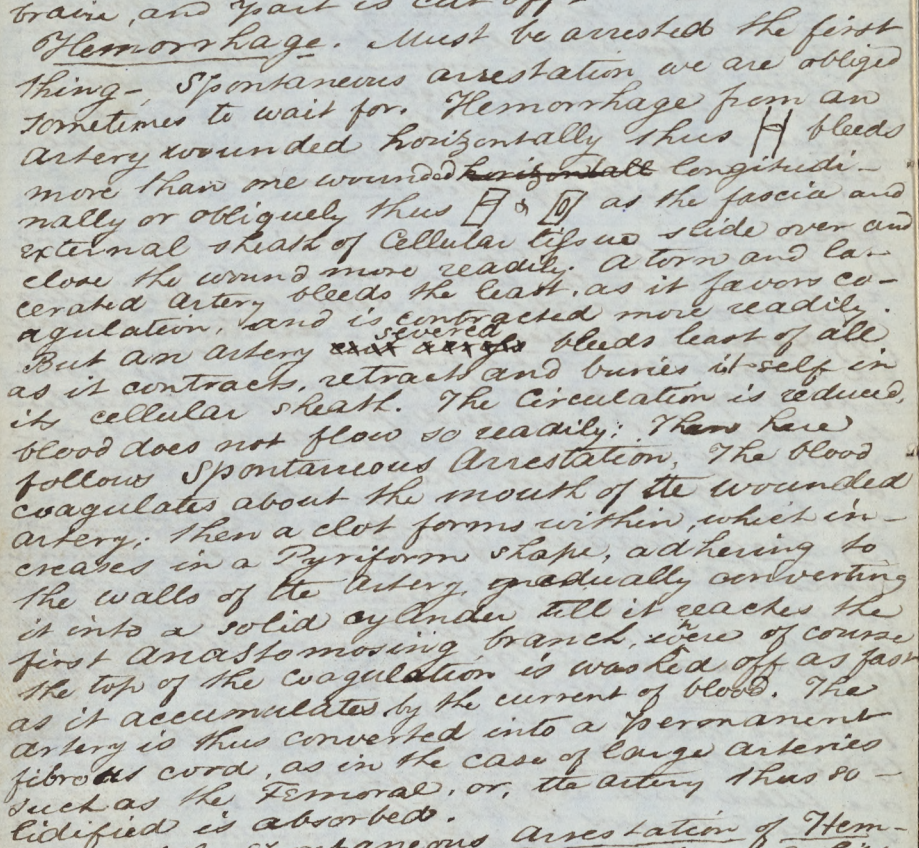 brain, and part is cut off
Hemorrhage. Must be arrested the first
thing – Spontaneous arrestation we are obliged
sometimes to wait for. Hemorrhage from an
artery wounded horizontally thus bleeds
more than one wounded horizontall longitudi-
nally or obliquely thus & as the fascia and
external sheath of Cellular tissue slide over and
close the wound more readily. A torn and la-
cerated artery bleeds the least, as it favors co-
agulation, and is contracted more readily.
But an artery severed bleeds least of all
as it contracts, retracts and buries itself in
its cellular sheath. The Circulation is reduced,
blood does not flow so readily; Then here
follows Spontaneous Arrestation, The blood
coagulates about the mouth of the wounded
artery; then a clot forms within, which in-
creases in a Pyriform shape, adhering to
the walls of the Artery, gradually converting
it into a solid cylinder till it reaches the
first Anastomosing branch, where of course
the top of the coagulation is washed off as fast
as it accumulates by the current of blood. The
artery is thus converted into a permanent
fibrous cord, as in the case of large arteries
such as the Femoral, or, the artery thus so-
lidified is absorbed.
arrestation of Hem-